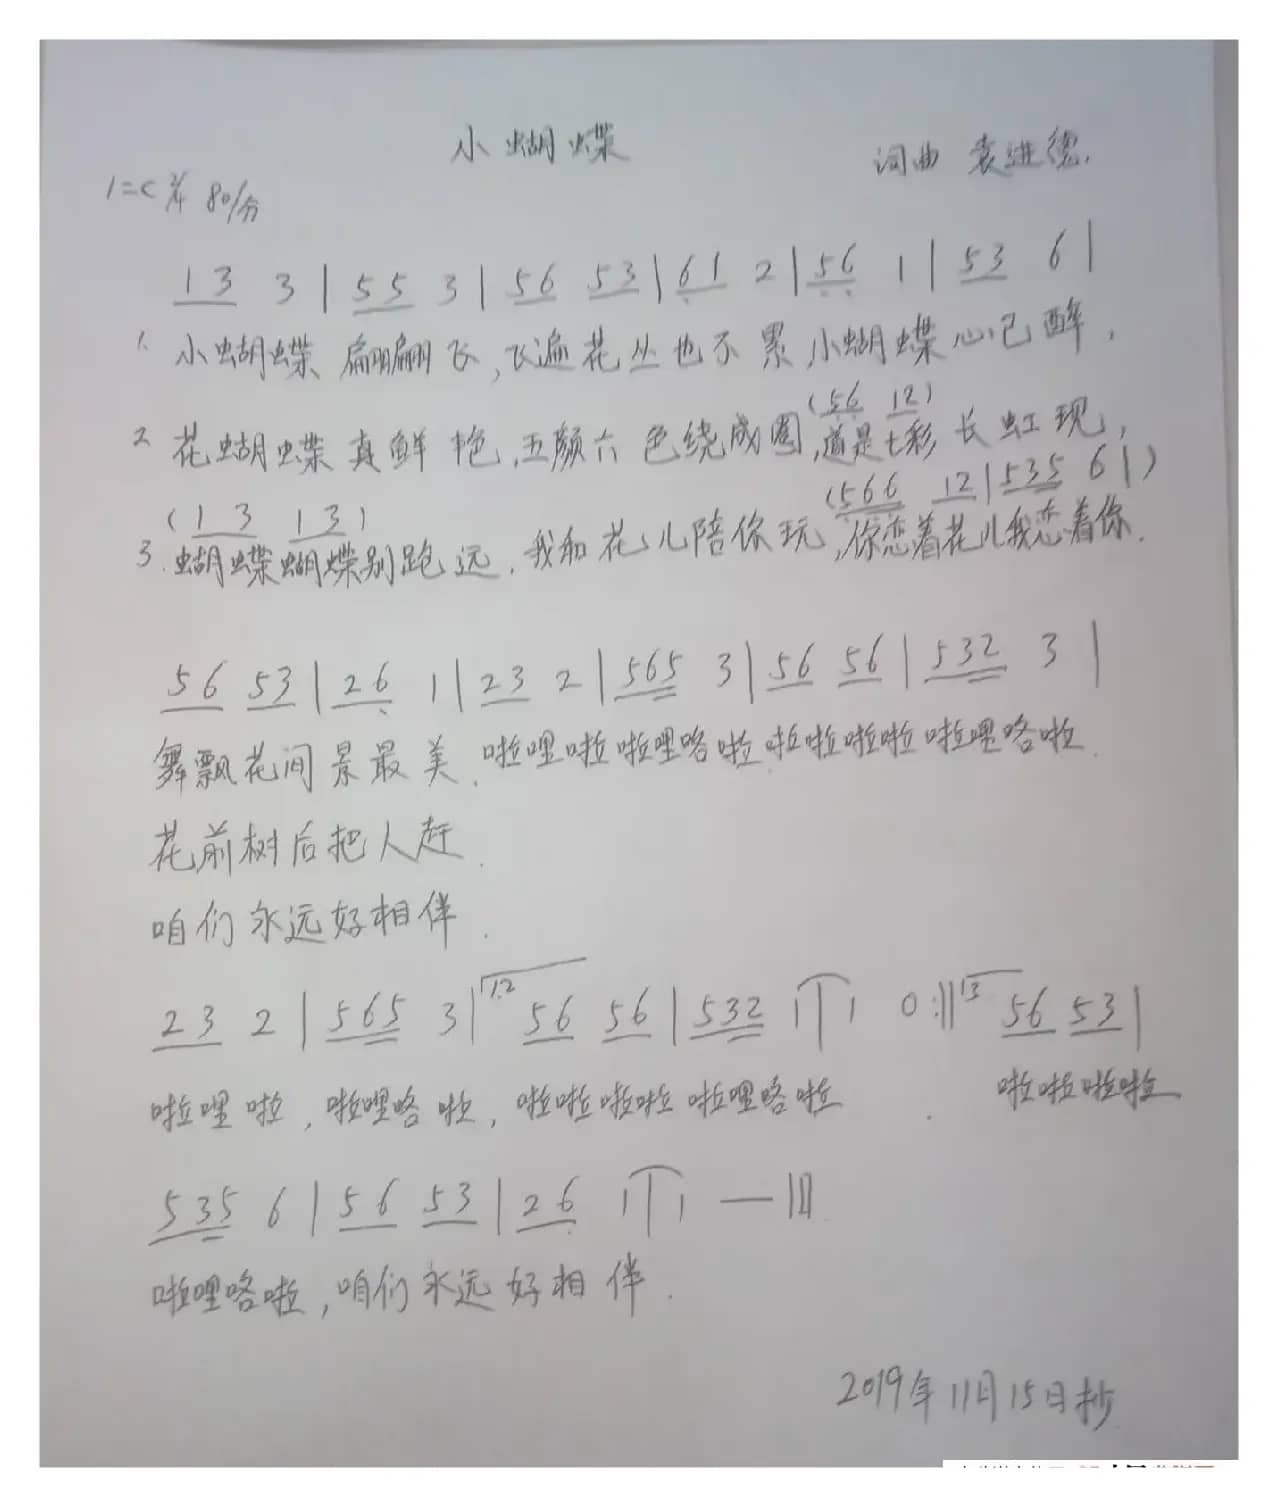 小蝴蝶
词曲 袁进德.
1=C 2/4 80/分
1 3 3 | 5 5 3 | 56 53 | 61 2 | 56 1 | 53 6 |
1. 小蝴蝶 翩翩飞,飞遍花丛也不累 小蝴蝶心已醉,
(56 12)
2 花蝴蝶真鲜艳,五颜六色绕成圈,道是七彩长虹现,
(566 12 | 535 6 | )
(13 13)
3. 蝴蝶蝴蝶别跑远.我和花儿陪你玩,你恋着花儿我恋着你.
56 53 | 26 1 | 23 2 | 565 3 | 56 56 | 532 3 |
舞飘花间景最美.啦哩啦啦哩咯啦.啦啦啦啦啦哩咯啦.
花前树后把人赶.
咱们永远好相伴.
23 2 | 565 3 | 1.2 56 56 | 532 1 | 1 0 :|| 13 56 53 |
啦哩啦,啦哩咯啦,啦啦啦啦啦哩咯啦. 啦啦啦啦
535 6 | 56 53 | 26 1 | 1 — ||
啦哩咯啦,咱们永远好相伴.
2019年11月15日抄